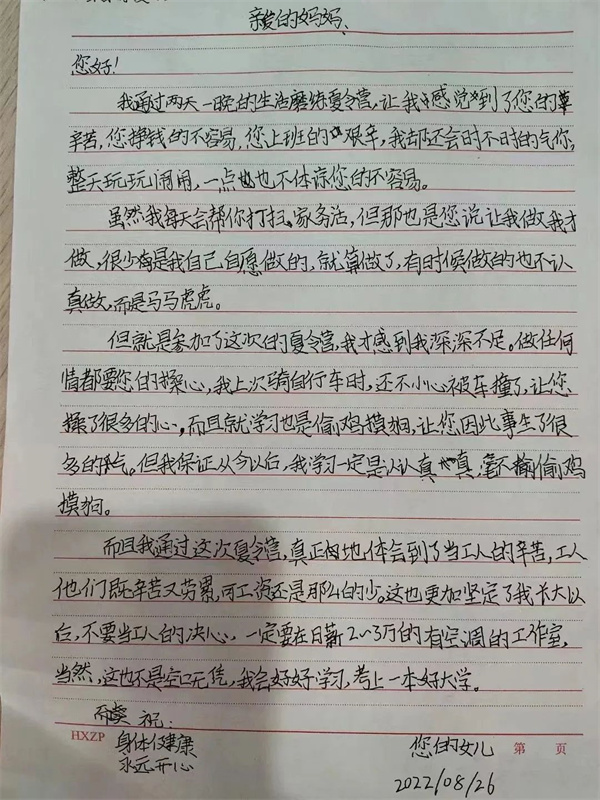 亲爱的妈妈、
您好！
我通过两天一晚的生活磨练夏令营，让我感觉到了您的
辛苦，您挣钱的不容易，您上班的艰辛，我却还会时不时的气你，
整天玩玩闹闹，一点也不体谅您的不容易。
虽然我每天会帮你打扫、家务活，但那也是您说让我做我才
做，很少有是我自己自愿做的，就算做了，有时候做的也不认
真做，而是马马虎虎。
但就是参加了这次的夏令营，我才感到我深深不足。做任何
情都要您的操心，我上次骑自行车时，还不小心被车撞了，让您
操了很多的心，而且就学习也是偷鸡摸狗，让您因此事生了很
多的气。但我保证从今以后，我学习一定是认认真真，毫不偷鸡
摸狗。
而且我通过这次夏令营，真正的地体会到了当工人的辛苦，工人
他们既辛苦又劳累，可工资还是那么的少。这也更加坚定了我长大以
后，不要当工人的决心，一定要在日薪2~3万的有空调的工作室，
当然，这也不是空口无凭，我会好好学习，考上一本好大学。
祝：
HXZP 身体健康 您的女儿 第 页
永远开心
2022/08/26